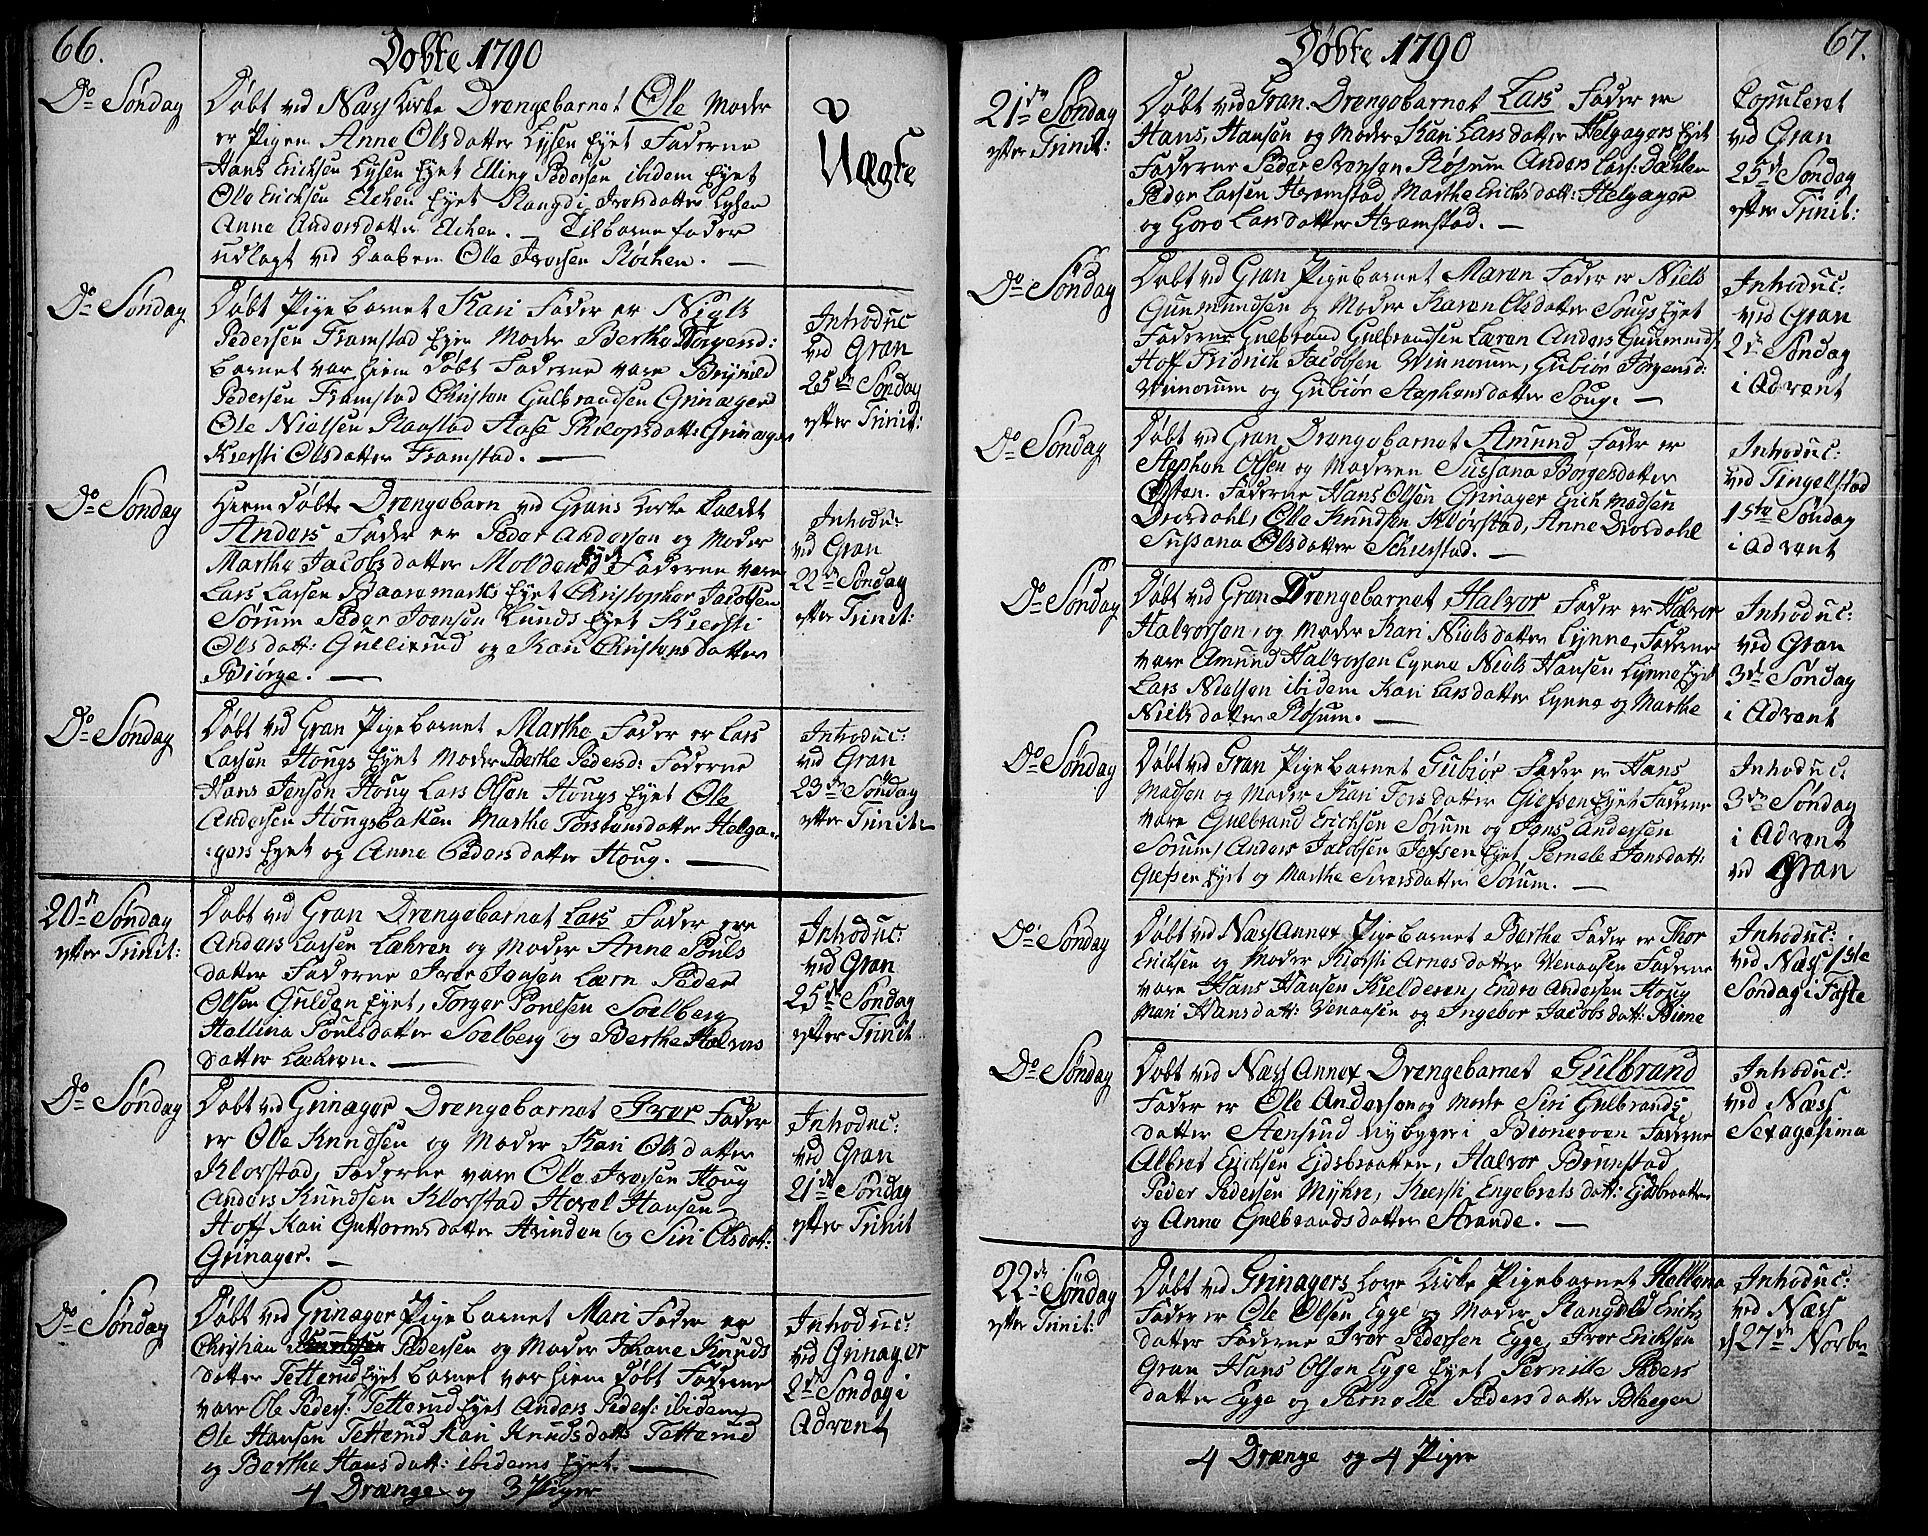 66.
Døbte 1790
Do Søndag
Døbt ved Næss Kirke Drengebarnet Ole Moder
er Pigen Anne Olsdatter Lysen Eyet Fadderne
Hans Ericksen Lysen Eyet Elling Pedersen ibidem Eyet
Ole Ericksen Elchen Eyet Rangdi Iversdatter Lysen
Anne Andersdatter Elchen. — Til barne fader
udlagt ved Daaben Ole Iversen Røchen. —
Uægte
Do Søndag
Døbt Pigebarnet Kari Fader er Niels
Pedersen Framstad Eyen Moder Berthe Børgersd:
barnet var hiem døbt Fadderne vare Brynild
Pedersen Framstad Christen Gulbrandsen Grinager
Ole Nielsen Raastad Aase Philopsdatt: Grinager
Kiersti Olsdatter Framstad. —
Introduc
ved Gran
25de Søndag
efter Trinit:
Do Søndag
Hiem døbte Drengebarn ved Grans Kirke kaldet
Anders Fader er Peder Andersen og Moder
Marthe Jacobsdatter Molden Eyet Fadderne vare
Lars Larsen Baaremarks Eyet Christopher Jacobsen
Sørum Peder Joensen Lunds Eyet Kiersti
Olsdatt: Gullixrud og Kari Christensdatter
Biørge. —
Introdu:
ved Gran
22de Søndag
efter Trinit:
Do Søndag
Døbt ved Gran Pigebarnet Marthe Fader er Lars
Larsen Hougs Eyet Moder Berthe Pedersd: Fadderne
Hans Jensen Houg Lars Olsen Hougs Eyet Ole
Andersen Hougsbakken Marthe Torstensdatter Helga-
gers Eyet og Anne Pedersdatter Houg. —
Introduc:
ved Gran
23de Søndag
efter Trinit:
20de Søndag
efter Trinit:
Døbt ved Gran Drengebarnet Lars Fader ere
Anders Larsen Læhren og Moder Anne Pouls
datter Fadderne Iver Jensen Læren Peder
Olsen Gulden Eyet, Torger Poulsen Soelberg
Hellina Poulsdatter Soelberg og Berthe Halvors
datter Læhren. —
Introduc:
ved Gran
25de Søndag
efter Trinit
Do Søndag
Døbt ved Grinager Drengebarnet Iver Fader
er Ole Knudsen og Moder Kari Olsdatter
Klorstad, Fadderne vare Ole Iversen Houg
Anders Knudsen Klorstad Hovel Hansen
Hoff Kari Guttormsdatter Hvinden og Siri Olsdatt:
Grinager. —
Introduc:
ved Gran
21de Søndag
efter Trinit
Do Søndag
Døbt ved Grinager Pigebarnet Mari Fader er
Christian Pedersen og Moder Johane Knuds
datter Tetterud Eyet barnet var hiem døbt Fadderne
vare Ole Peders: Tetterud Eyet Anders Peders: ibidem
Ole Hansen Tetterud Kari Knudsdatt: Tetterud
og Berthe Hansdatt: ibidems Eyet. —
Introduc:
ved Grinager
2de Søndag i
Advent
4 Drænge og 3 Piger
67.
Døbte 1790
21de Søndag
efter Trinit:
Døbt ved Gran Drengebarnet Lars Fader er
Hans Hansen og Moder Kari Larsdatter Helgagers Eyet
Fadderne Peder Evensen Røsum Anders Lars: Dahlen
Peder Larsen Hramstad Marthe Ericksdatt: Helgager
og Goro Larsdatter Hramstad. —
Copuleret
ved Gran
25de Søndag
efter Trinit:
Do Søndag
Døbt ved Gran Pigebarnet Maren Fader er Niels
Gunmundsen og Moder Karen Olsdatter Sougs Eyet
Fadderne Gulbrand Gulbrandsen Læren Anders Gunmunds:
Hoff Fridrich Jacobsen Vinnorum, Gubiør Jørgensd:
Vinnorum og Gubiør Stephensdatter Soug. —
Introduc:
ved Gran
2de Søndag
i Advent
Do Søndag
Døbt ved Gran Drengebarnet Amund Fader er
Stephen Olsen og Moderen Sussana Børgesdatter
Østen. Fadderne Hans Olsen Grinager Erich Madsen
Dvørdahl, Ole Knudsen Klørstad, Anne Dvordahl
Sussana Olsdatter Schierstad. —
Introduc:
ved Tingelstad
1ste Søndag
i Advent
Do Søndag
Døbt ved Gran Drengebarnet Halvor Fader er Halvor
Halvorsen, og Moder Kari Nielsdatter Lynne, Fadderne
vare Amund Halvorsen Lynne Niels Hansen Lynne Eyet
Lars Nielsen ibidem Kari Larsdatter Lynne og Marthe
Nielsdatter Røsum. —
Introduc:
ved Gran
3de Søndag
i Advent
Do Søndag
Døbt ved Gran Pigebarnet Gubiør Fader er Hans
Madsen og Moder Kari Torsdatter Giefsen Eyet Fadderne
vare Gulbrand Ericksen Sørum og Jens Andersen
Sørum, Anders Jacobsen Jefsen Eyet, Pernele Jensdatt:
Giefsen Eyet og Marthe Siversdatter Sørum. —
Introduc:
3de Søndag
i Advent
ved Gran
Do Søndag
Døbt ved Næss Annex Pigebarnet Berthe Fader er Thor
Ericksen og Moder Kiersti Arnesdatter Venaasen Fadderne
vare Hans Hansen Kielderen, Endre Andersen Houg
Mari Hansdatt: Venaasen og Ingebor Jacobsdatt: Biune
Introduc:
ved Næss 1ste
Søndag i Faste
Do Søndag
Døbt ved Næss Annex Drengebarnet Gulbrand
Fader er Ole Andersen og Mode Siri Gulbrands
datter Stensrud Nybygger i Bioneroen Fadderne
Albret Ericksen Eidsbraatten, Halvor Brunstad
Peder Pedersen Myhre, Kiersti Engebretsdatt: Eidsbraatten
og Anne Gulbrandsdatter Strande. —
Introduc:
ved Næss
Sexagesima
22de Søndag
efter Trinit:
Døbt ved Grinagers Love Kirke Pigebarnet Hellena
Fader er Ole Olsen Egge og Moder Rangdild Ericks
datter Fadderne Iver Pedersen Egge Iver Ericksen
Gran Hans Olsen Egge Eyet Pernille Peders
datter Egge og Pernelle Pedersdatter Bleegen
Introduc:
ved Næss
d 27de Novbr
4 Drænge og 4 Piger